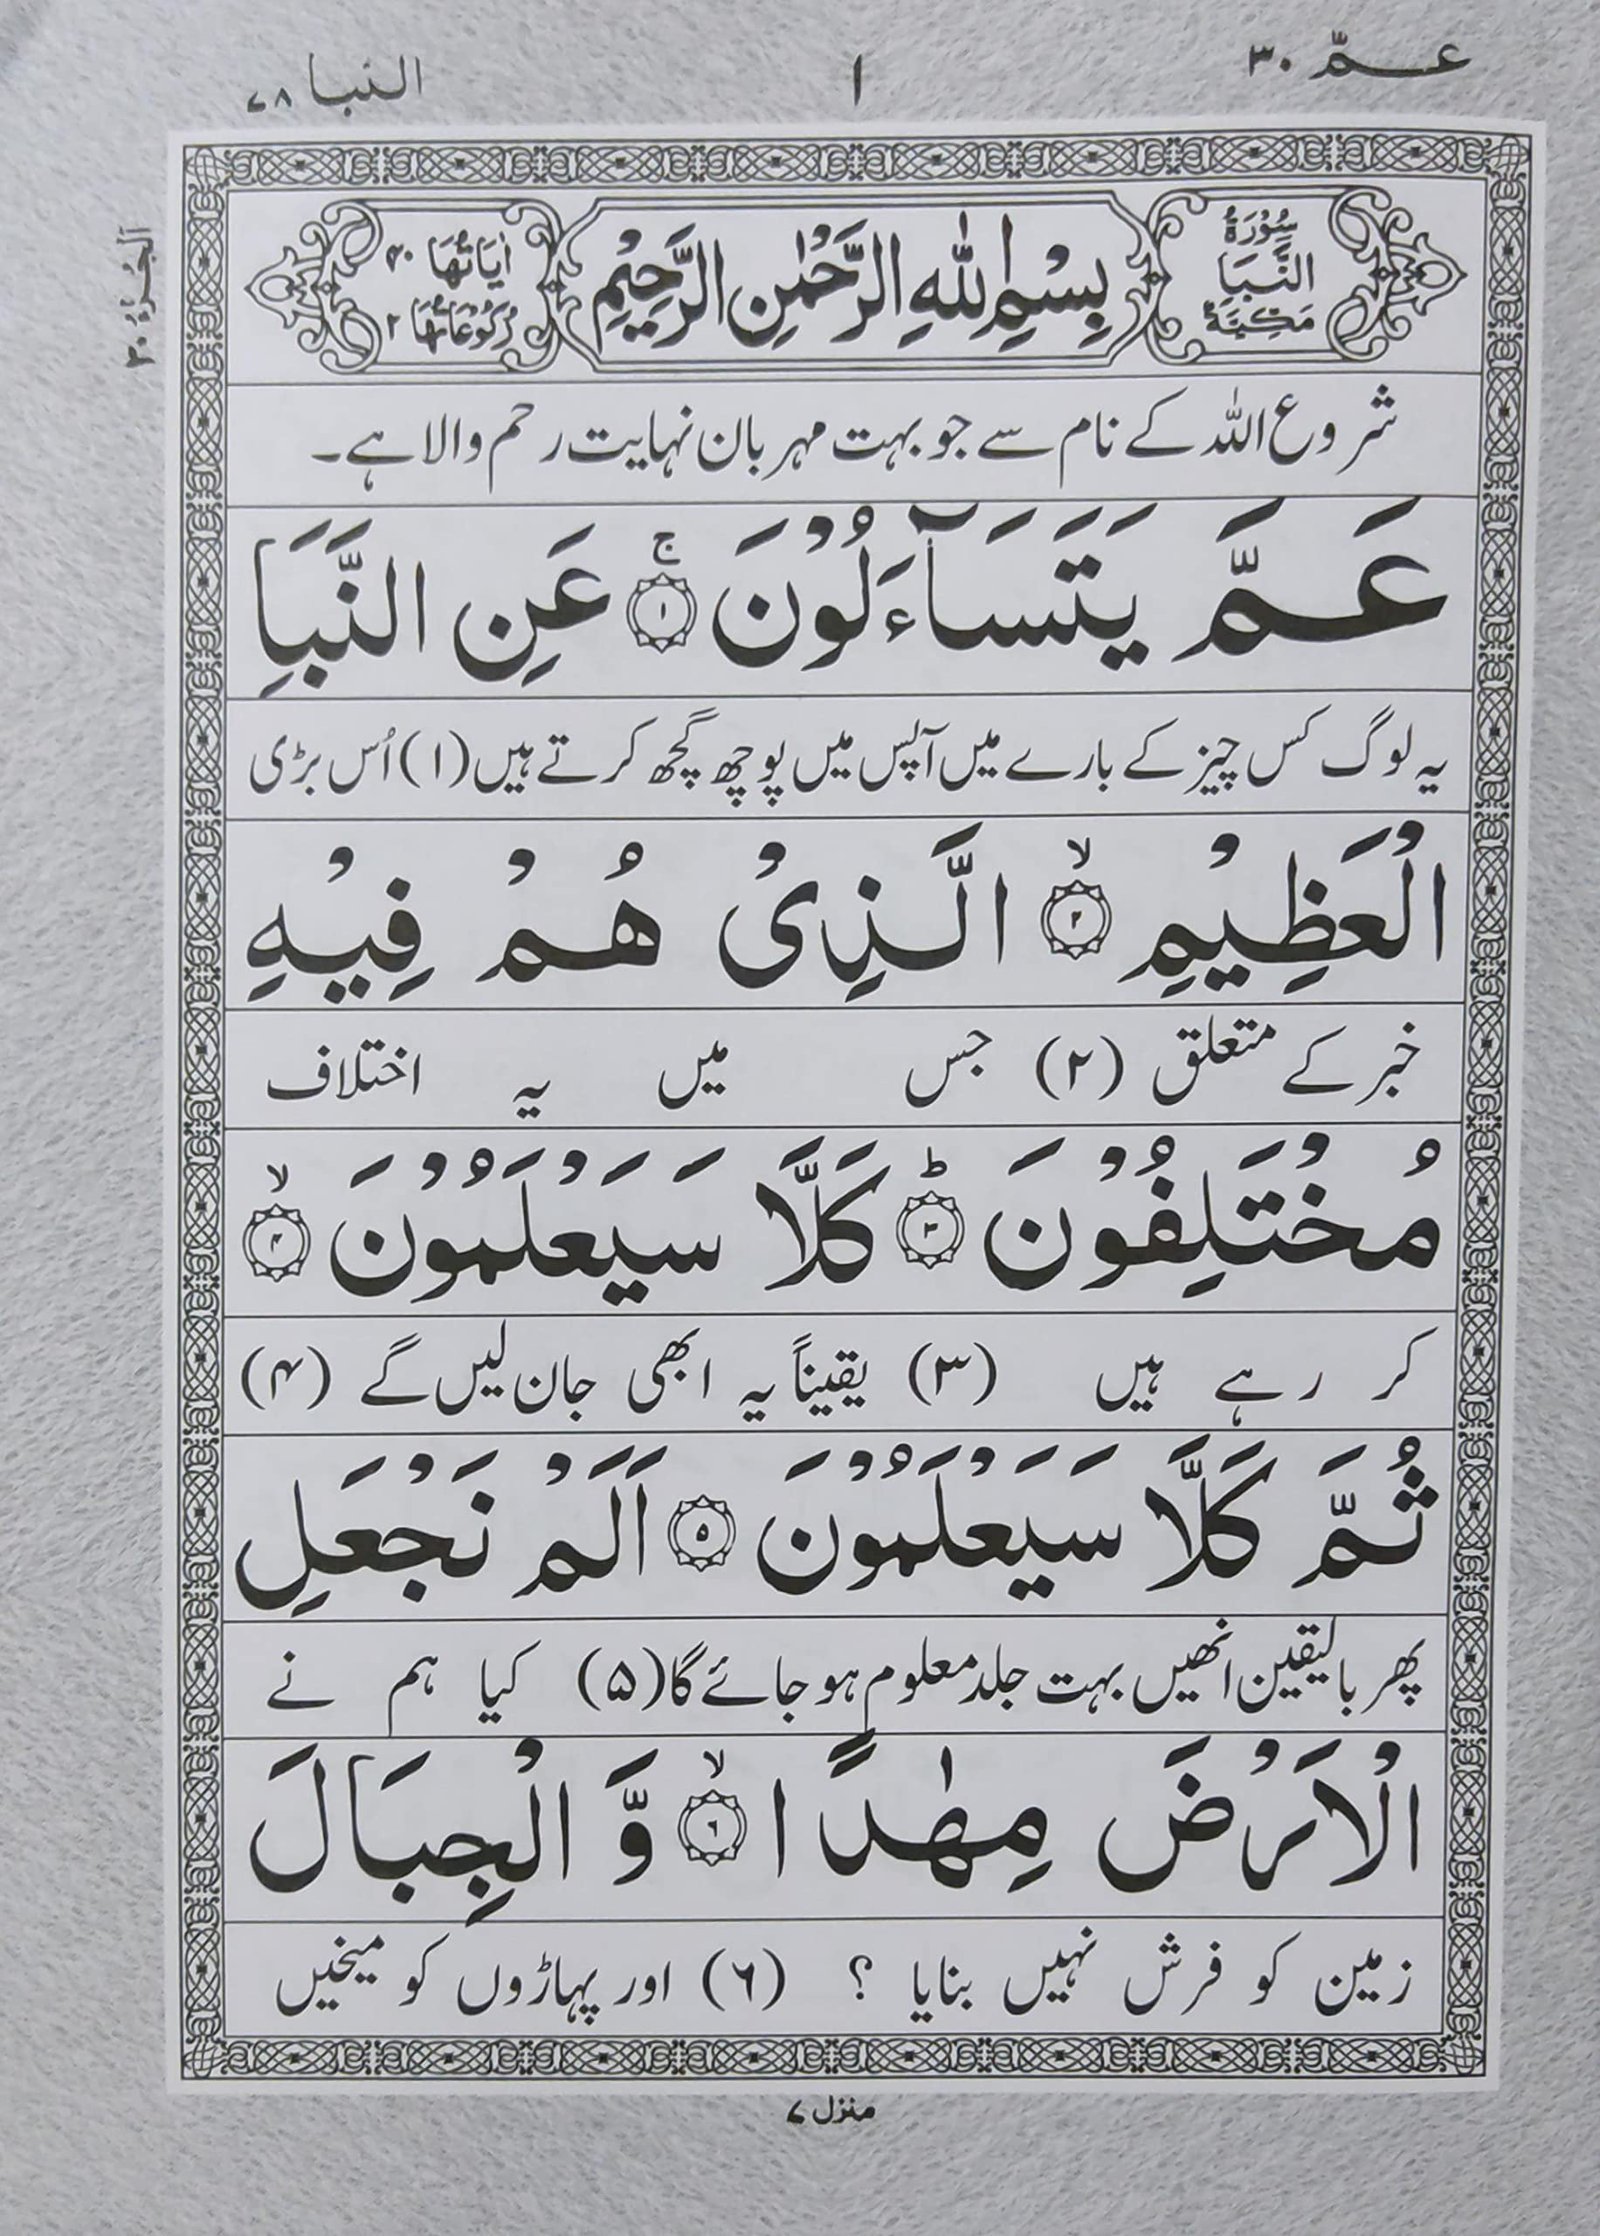 عـــمّ ٣٠
١
النبا ٧٨
الجزء ٣٠
سُوْرَةُ النَّبَإِ مَكِّيَّةٌ
بِسْمِ اللّٰهِ الرَّحْمٰنِ الرَّحِيْمِ
اٰيَاتُهَا ٤٠
رُكُوْعَاتُهَا ٢
شروع اللہ کے نام سے جو بہت مہربان نہایت رحم والا ہے۔
عَمَّ يَتَسَآءَلُوْنَ ۚ ﴿١﴾ عَنِ النَّبَاِ
یہ لوگ کس چیز کے بارے میں آپس میں پوچھ گچھ کرتے ہیں (۱) اُس بڑی
الْعَظِيْمِ ۙ ﴿٢﴾ الَّذِیْ هُمْ فِيْهِ
خبر کے متعلق (۲) جس میں یہ اختلاف
مُخْتَلِفُوْنَ ؕ ﴿٣﴾ كَلَّا سَيَعْلَمُوْنَ ۙ ﴿٤﴾
کر رہے ہیں (۳) یقیناً یہ ابھی جان لیں گے (۴)
ثُمَّ كَلَّا سَيَعْلَمُوْنَ ﴿٥﴾ اَلَمْ نَجْعَلِ
پھر بالیقین انھیں بہت جلد معلوم ہو جائے گا (۵) کیا ہم نے
الْاَرْضَ مِهٰدًا ۙ ﴿٦﴾ وَّ الْجِبَالَ
زمین کو فرش نہیں بنایا ؟ (۶) اور پہاڑوں کو میخیں
منزل ٧